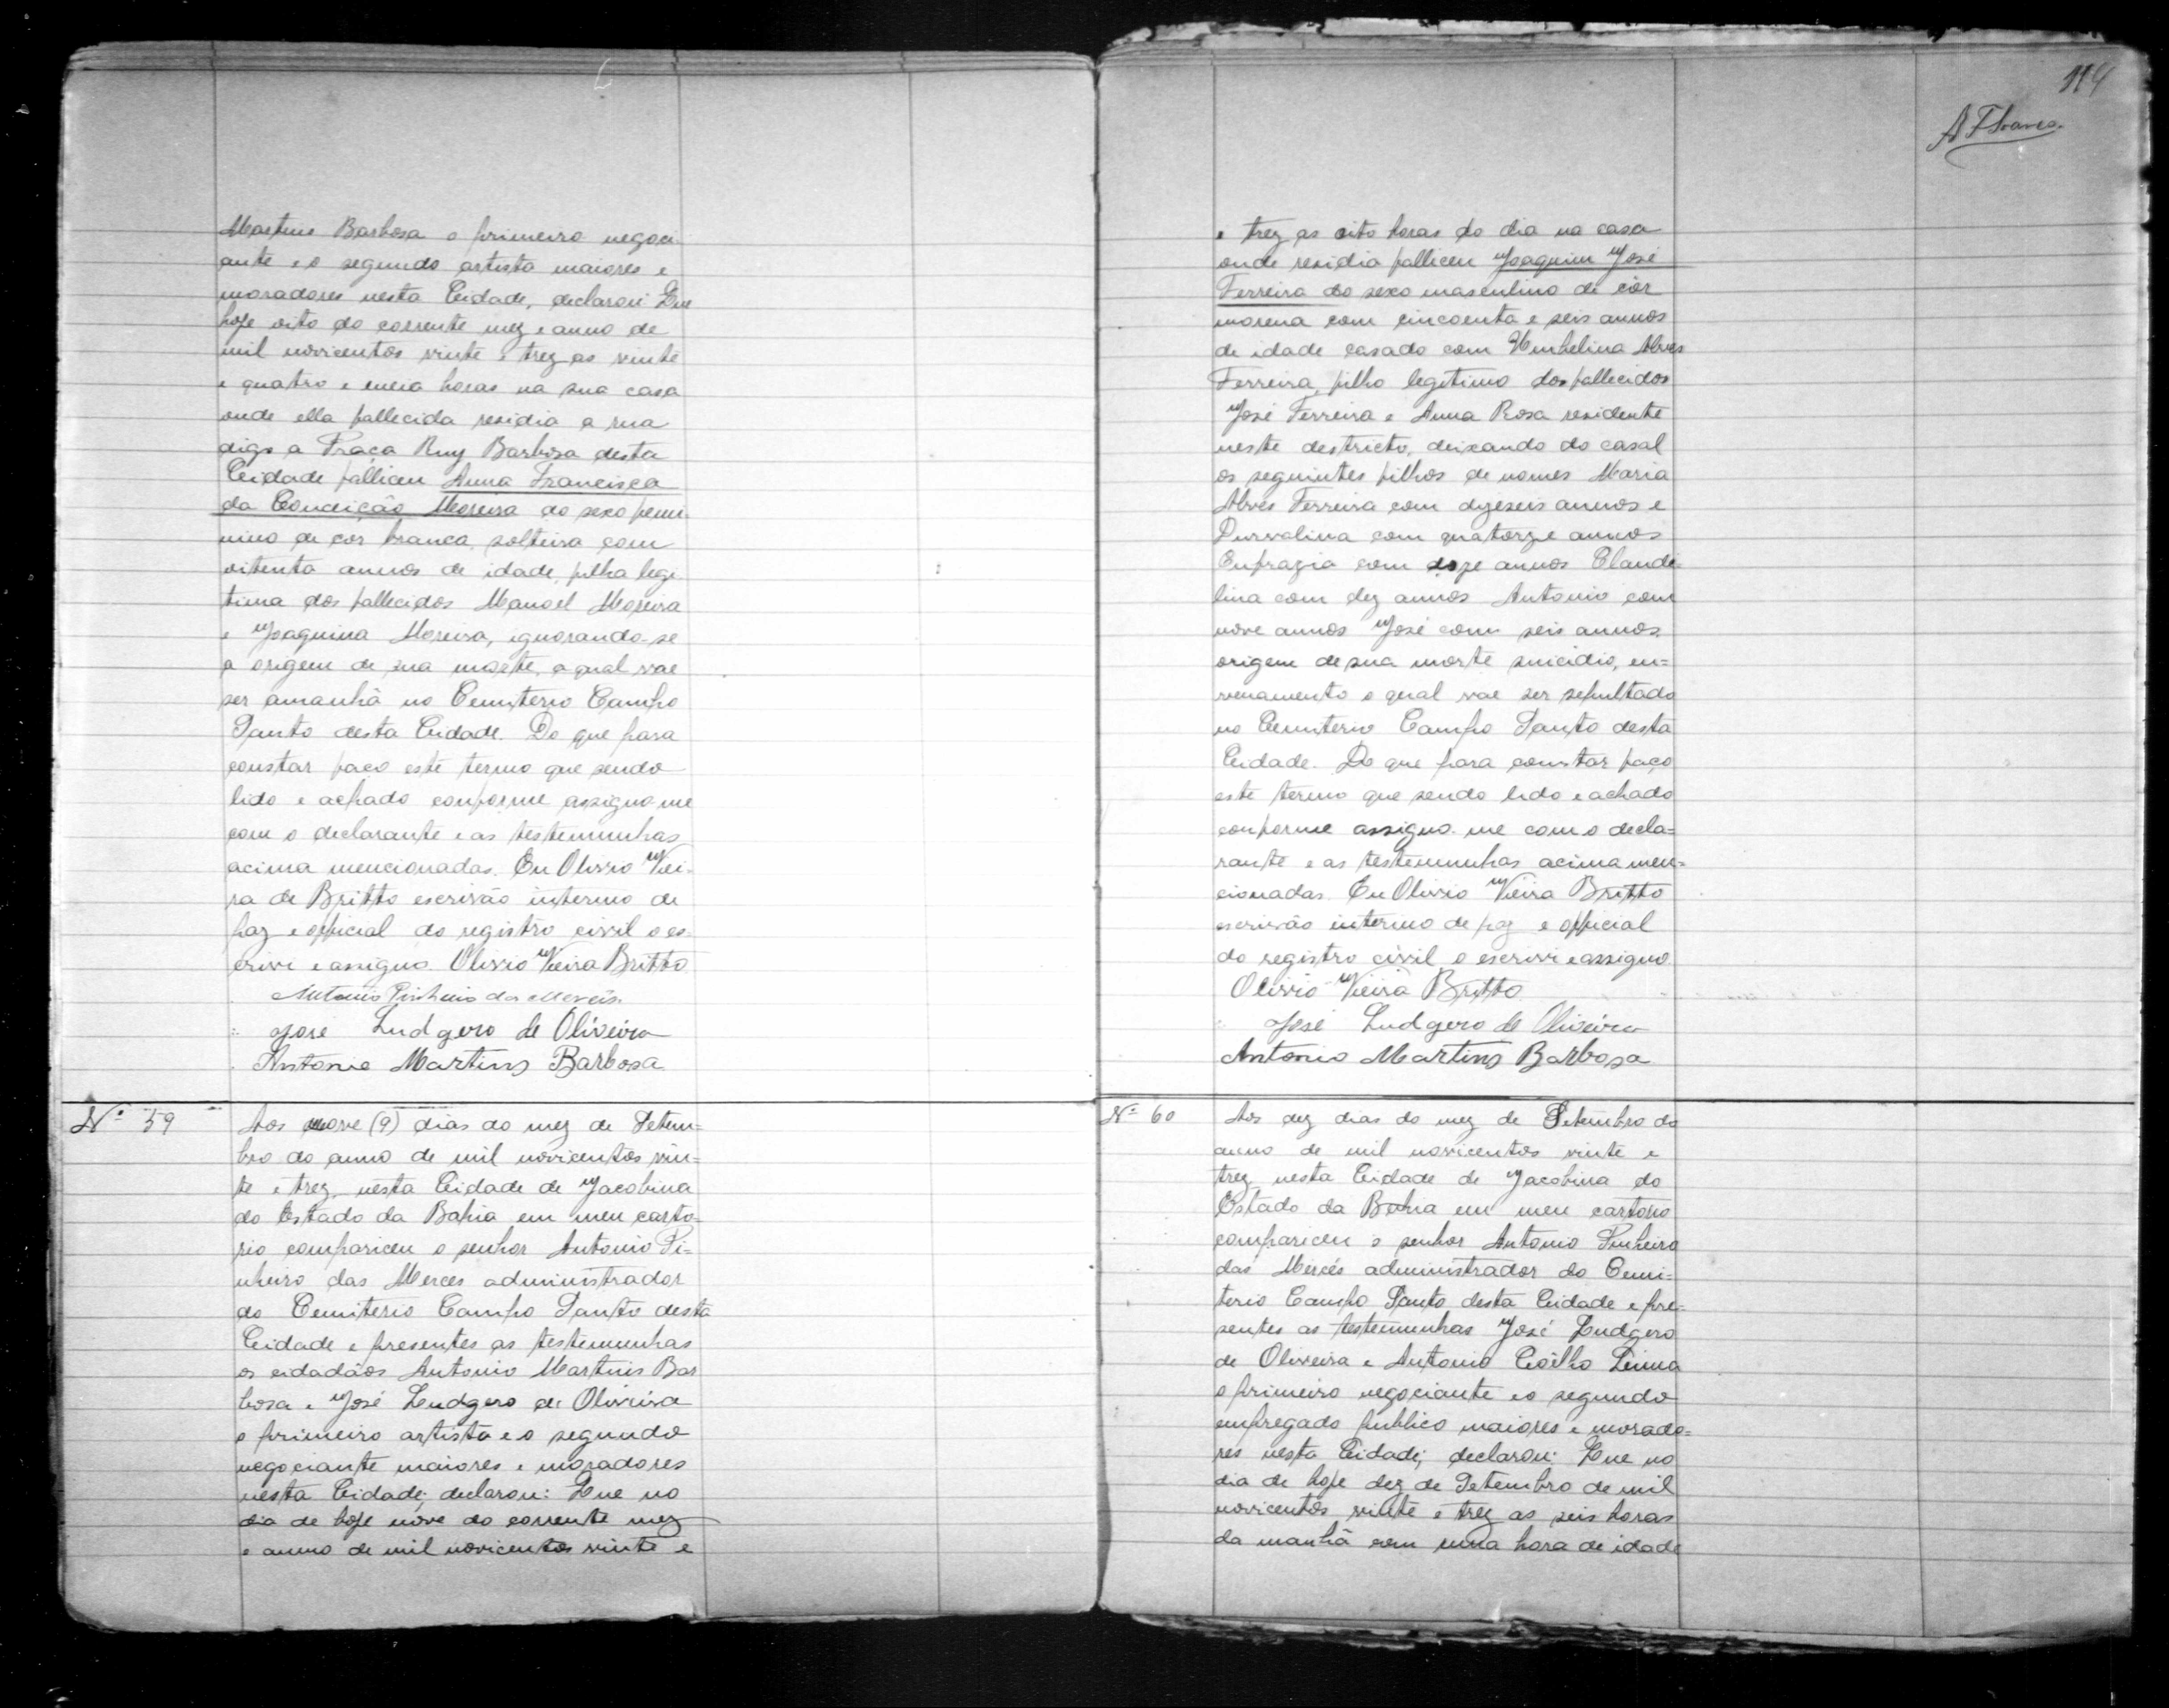 Martins Barbosa o primeiro negoci-
ante e o segundo artista maiores e
moradores nesta Cidade, declarou: Que
hoje oito do corrente mez e anno de
mil novicentos vinte e trez as vinte
e quatro e meia horas na sua casa
onde ella fallecida residia a rua
digo a Praça Ruy Barbosa desta
Cidade falliceu Anna Francisca
da Conceição Moreira do sexo femi-
nino de cor branca, solteira com
oitenta annos de idade, filha legi-
tima dos fallecidos Manoel Moreira
e Joaquina Moreira, ignorando-se
a origem de sua morte, a qual vae
ser amanhã no Cemiterio Campo
Santo desta Cidade. Do que para
constar faço este termo que sendo
lido e achado conforme assigno-me
com o declarante e as testemunhas
acima mencionadas. Eu Olivio Viei-
ra de Britto escrivão interino de
paz e official do registro civil o es-
crivi e assigno. Olivio Vieira Britto
Antonio Pinheiro das Mercês
José Ludgero de Oliveira
Antonio Martins Barbosa
Nº 59
Aos nove (9) dias do mez de Setem=
bro do anno de mil novicentos vin=
te e trez, nesta Cidade de Jacobina
do Estado da Bahia em meu carto-
rio compariceu o senhor Antonio Pi=
nheiro das Merces administrador
do Cemiterio Campo Santo desta
Cidade e presentes as testemunhas
os cidadãos Antonio Martins Bar
bosa e José Ludgero de Oliveira
o primeiro artista e o segundo
negociante maiores e moradores
nesta Cidade; declarou: Que no
dia de hoje nove do corrente mez
e anno de mil novicentos vinte e
114
e trez as oito horas do dia na casa
onde residia falliceu Joaquim José
Ferreira do sexo masculino de côr
morena com cincoenta e seis annos
de idade casado com Umbelina Alves
Ferreira, filho legitimo dos fallecidos
José Ferreira e Anna Rosa residente
neste destricto, deixando do casal
os seguintes filhos de nomes Maria
Alves Ferreira com dyeseis annos e
Durvalina com quatorze annos
Eufrazia com doze annos Claude-
lina com dez annos Antonio com
nove annos José com seis annos.
origem de sua morte suicidio, en=
venamento o qual vae ser sepultado
no Cemiterio Campo Santo desta
Cidade. Do que para constar faço
este termo que sendo lido e achado
conforme assigno-me com o decla=
rante e as testemunhas acima men=
cionadas. Eu Olivio Vieira Britto
escrivão interino de paz e official
do registro civil o escrivi e assigno.
Olivio Vieira Britto
José Ludgero de Oliveira
Antonio Martins Barbosa
Nº 60
Aos dez dias do mez de Setembro do
anno de mil novicentos vinte e
trez nesta Cidade de Jacobina do
Estado da Bahia em meu cartorio
compariceu o senhor Antonio Pinheiro
das Mercês administrador do Cemi=
terio Campo Santo desta Cidade e pre-
sentes as testemunhas José Ludgero
de Oliveira e Antonio Coêlho Lima
o primeiro negociante e o segundo
empregado publico maiores e morado=
res nesta Cidade; declarou: Que no
dia de hoje dez de Setembro de mil
novicentos vinte e trez as seis horas
da manhã com uma hora de idade